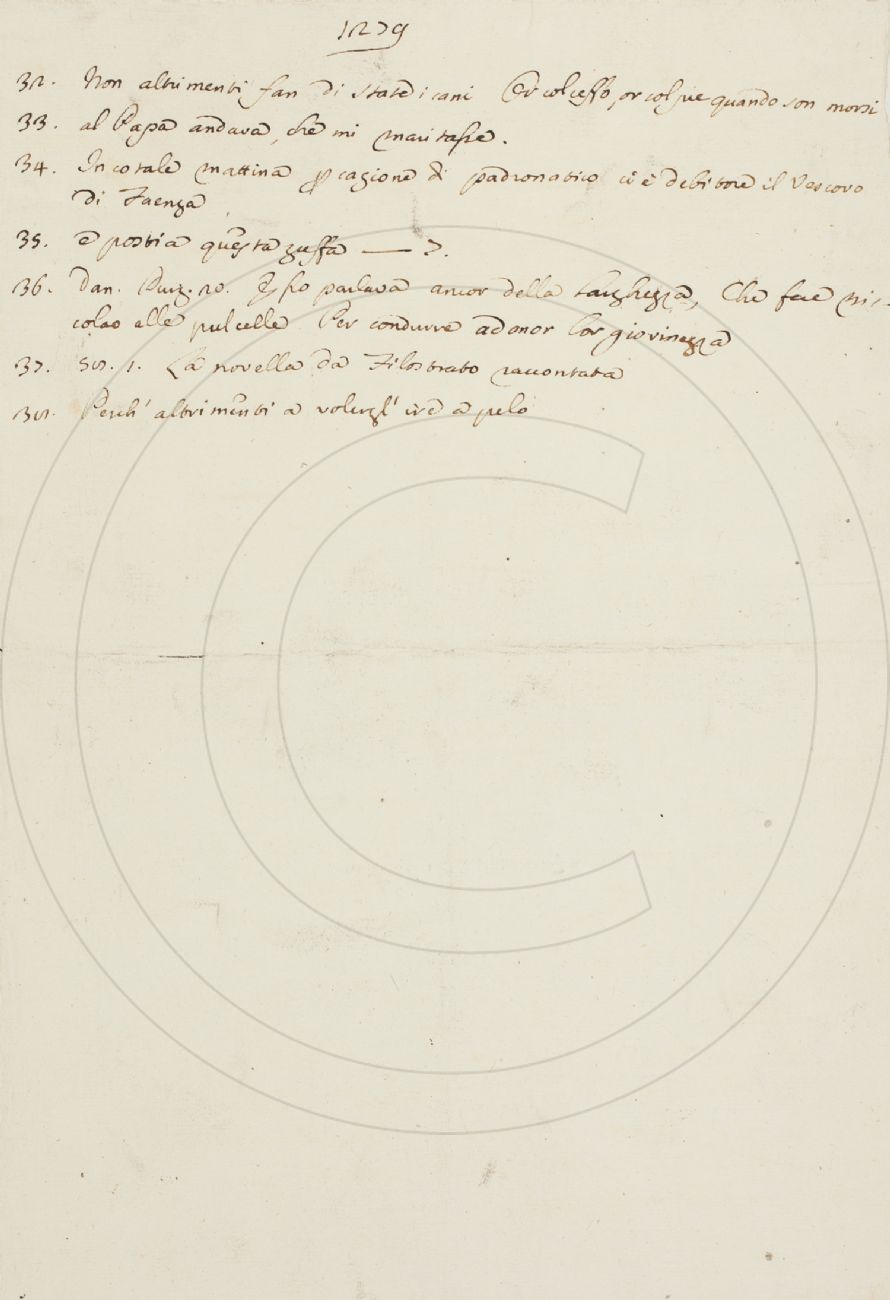 1279
32. Non altrimenti fan di state i cani Or col ceffo, or col pie quando son morsi
33. al Papa andava, che mi maritasse.
34. In cotale mattina p cagione di padronatico ci è debitore il Vescovo
di Faenza
35. e postia questa zuffa — 7.
36. Dan. Purg. 20. Esso parlava ancor della larghezza, Che fece Ni-
colao alle pulcelle Per condurre ad onor lor giovinezza
37. 1. La novella da Filostrato raccontata
38. Perch' altrimenti a volergl' ire a pelo